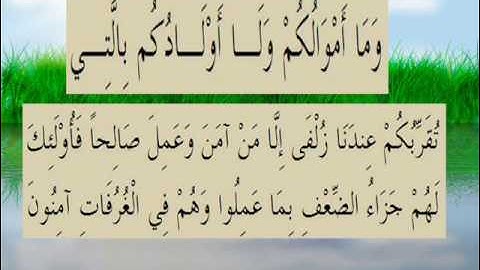 وَمَا أَمْوَالُكُمْ وَلَـــا أَوْلَـــادُكُم بِالَّتِـــي
تُقَرِّبُكُمْ عِندَنَا زُلْفَى إِلَّا مَنْ آمَنَ وَعَمِلَ صَالِحاً فَأُوْلَئِكَ
لَهُمْ جَزَاءُ الضِّعْفِ بِمَا عَمِلُوا وَهُمْ فِي الْغُرُفَاتِ آمِنُونَ